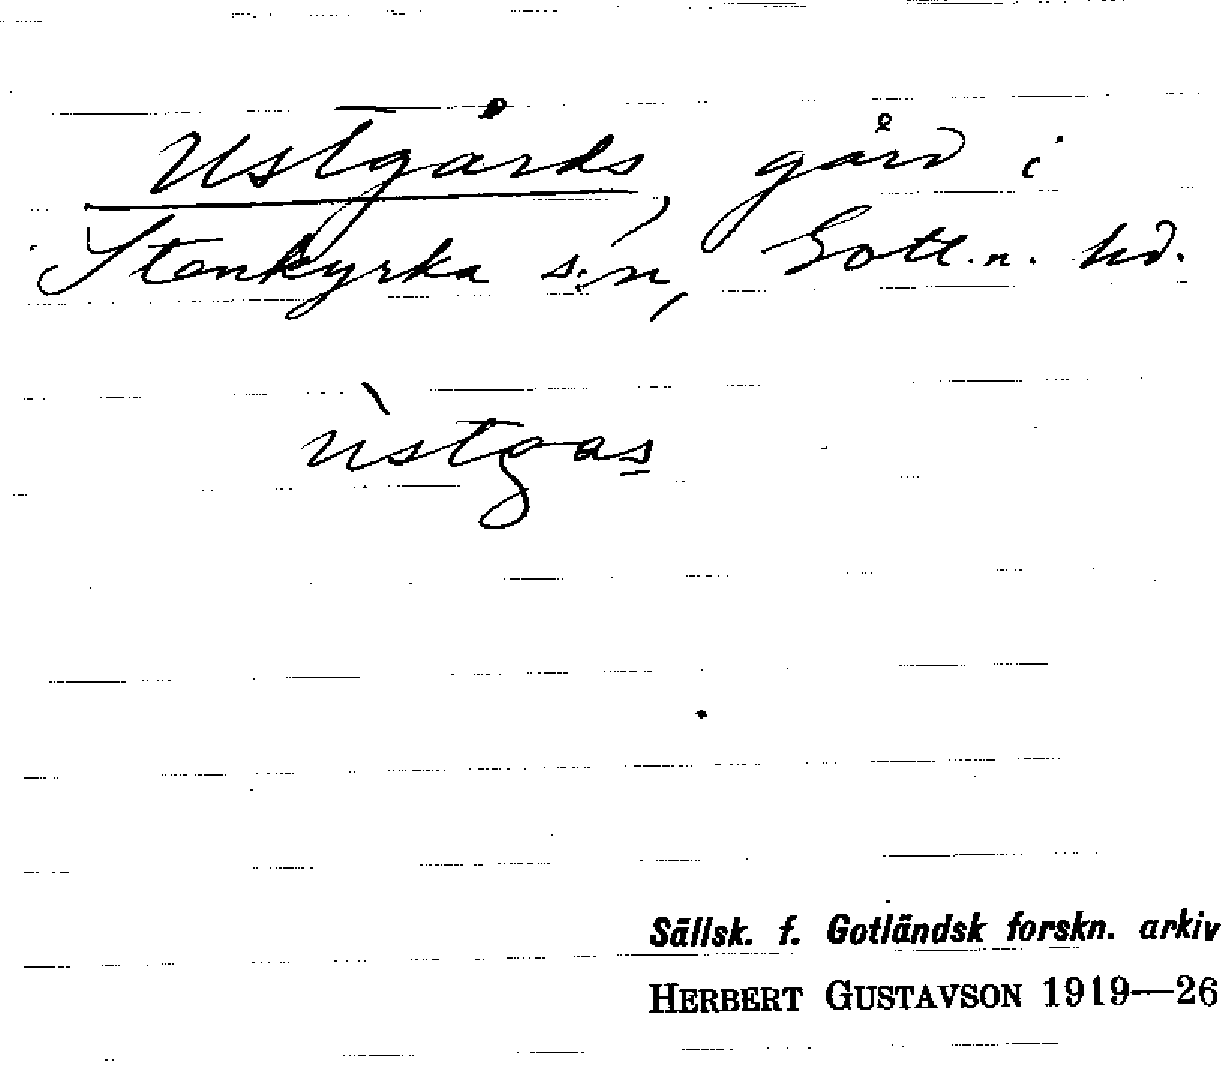 Ustgårds, gård i
Stenkyrka s:n, Gotl. n. hd.
ùstgas
Sällsk. f. Gotländsk forskn. arkiv
HERBERT GUSTAVSON 1919—26